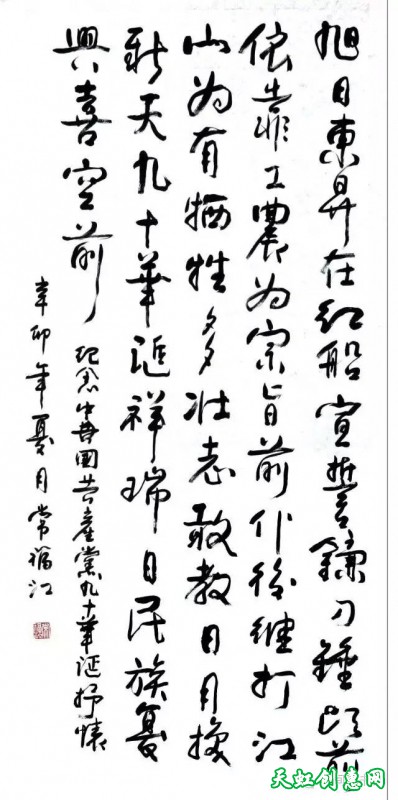 旭日東昇在红船宣誓鐮刀錘头前
依靠工農为宗旨前仆後継打江
山为有牺牲多壮志敢教日月換
新天九十華诞祥瑞日民族复
興喜空前
纪念中國共產黨九十華诞抒懐
辛卯年夏月常福江
天虹创惠网